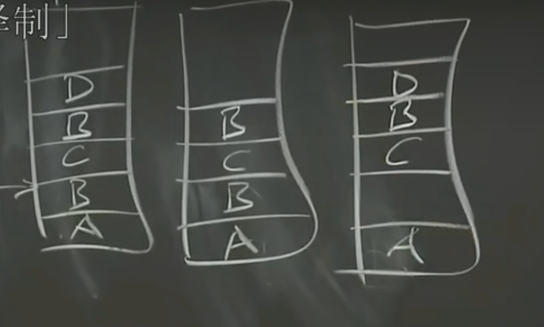 译制」
D
B
C
B
A
B
C
B
A
D
B
C
A